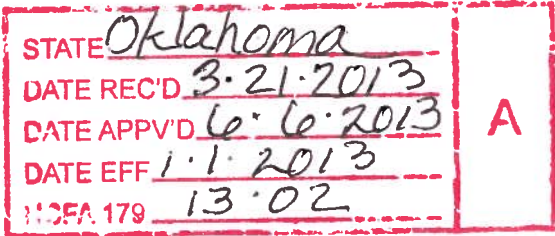 STATE Oklahoma
DATE REC'D 3-21-2013
DATE APPV'D 6-6-2013
DATE EFF 1-1-2013
HCFA 179 13-02
A